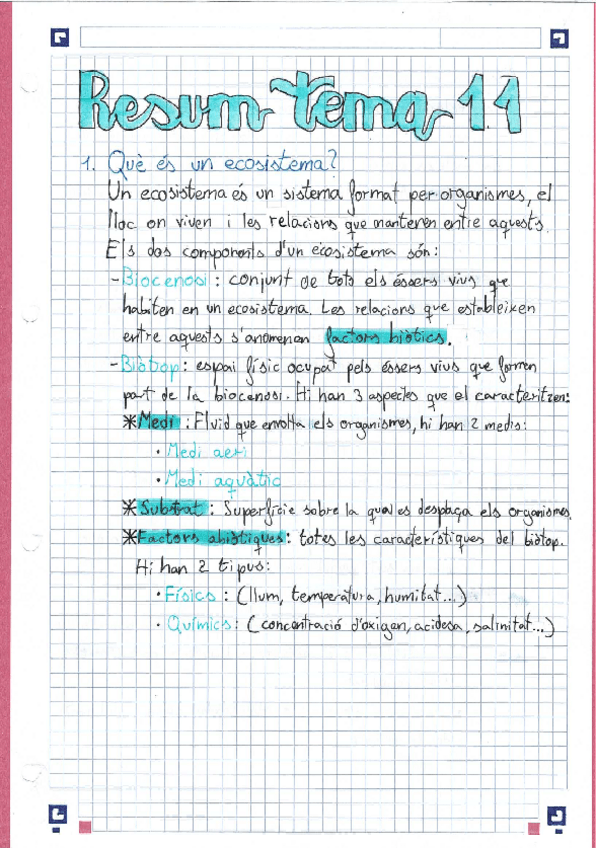 Resum tema 11
1. Què és un ecosistema?
Un ecosistema és un sistema format per organismes, el
lloc on viven i les relacions que mantenen entre aquests.
Els dos components d'un ecosistema són:
-Biocenosi: conjunt de tots els éssers vius que
habiten en un ecosistema. Les relacions que estableixen
entre aquests s'anomenan factors biòtics.
-Biòtop: espai físic ocupat pels éssers vius que formen
part de la biocenosi. Hi han 3 aspectes que el caracteritzen:
*Medi: Fluid que envolta els organismes, hi han 2 medis:
· Medi aeri
· Medi aquàtic
*Substrat: Superfície sobre la qual es desplaça els organismes.
*Factors abiòtiques: totes les característiques del biòtop.
Hi han 2 tipus:
· Físics: (llum, temperatura, humitat...)
· Químics: (concentració d'oxigen, acidesa, salinitat...)